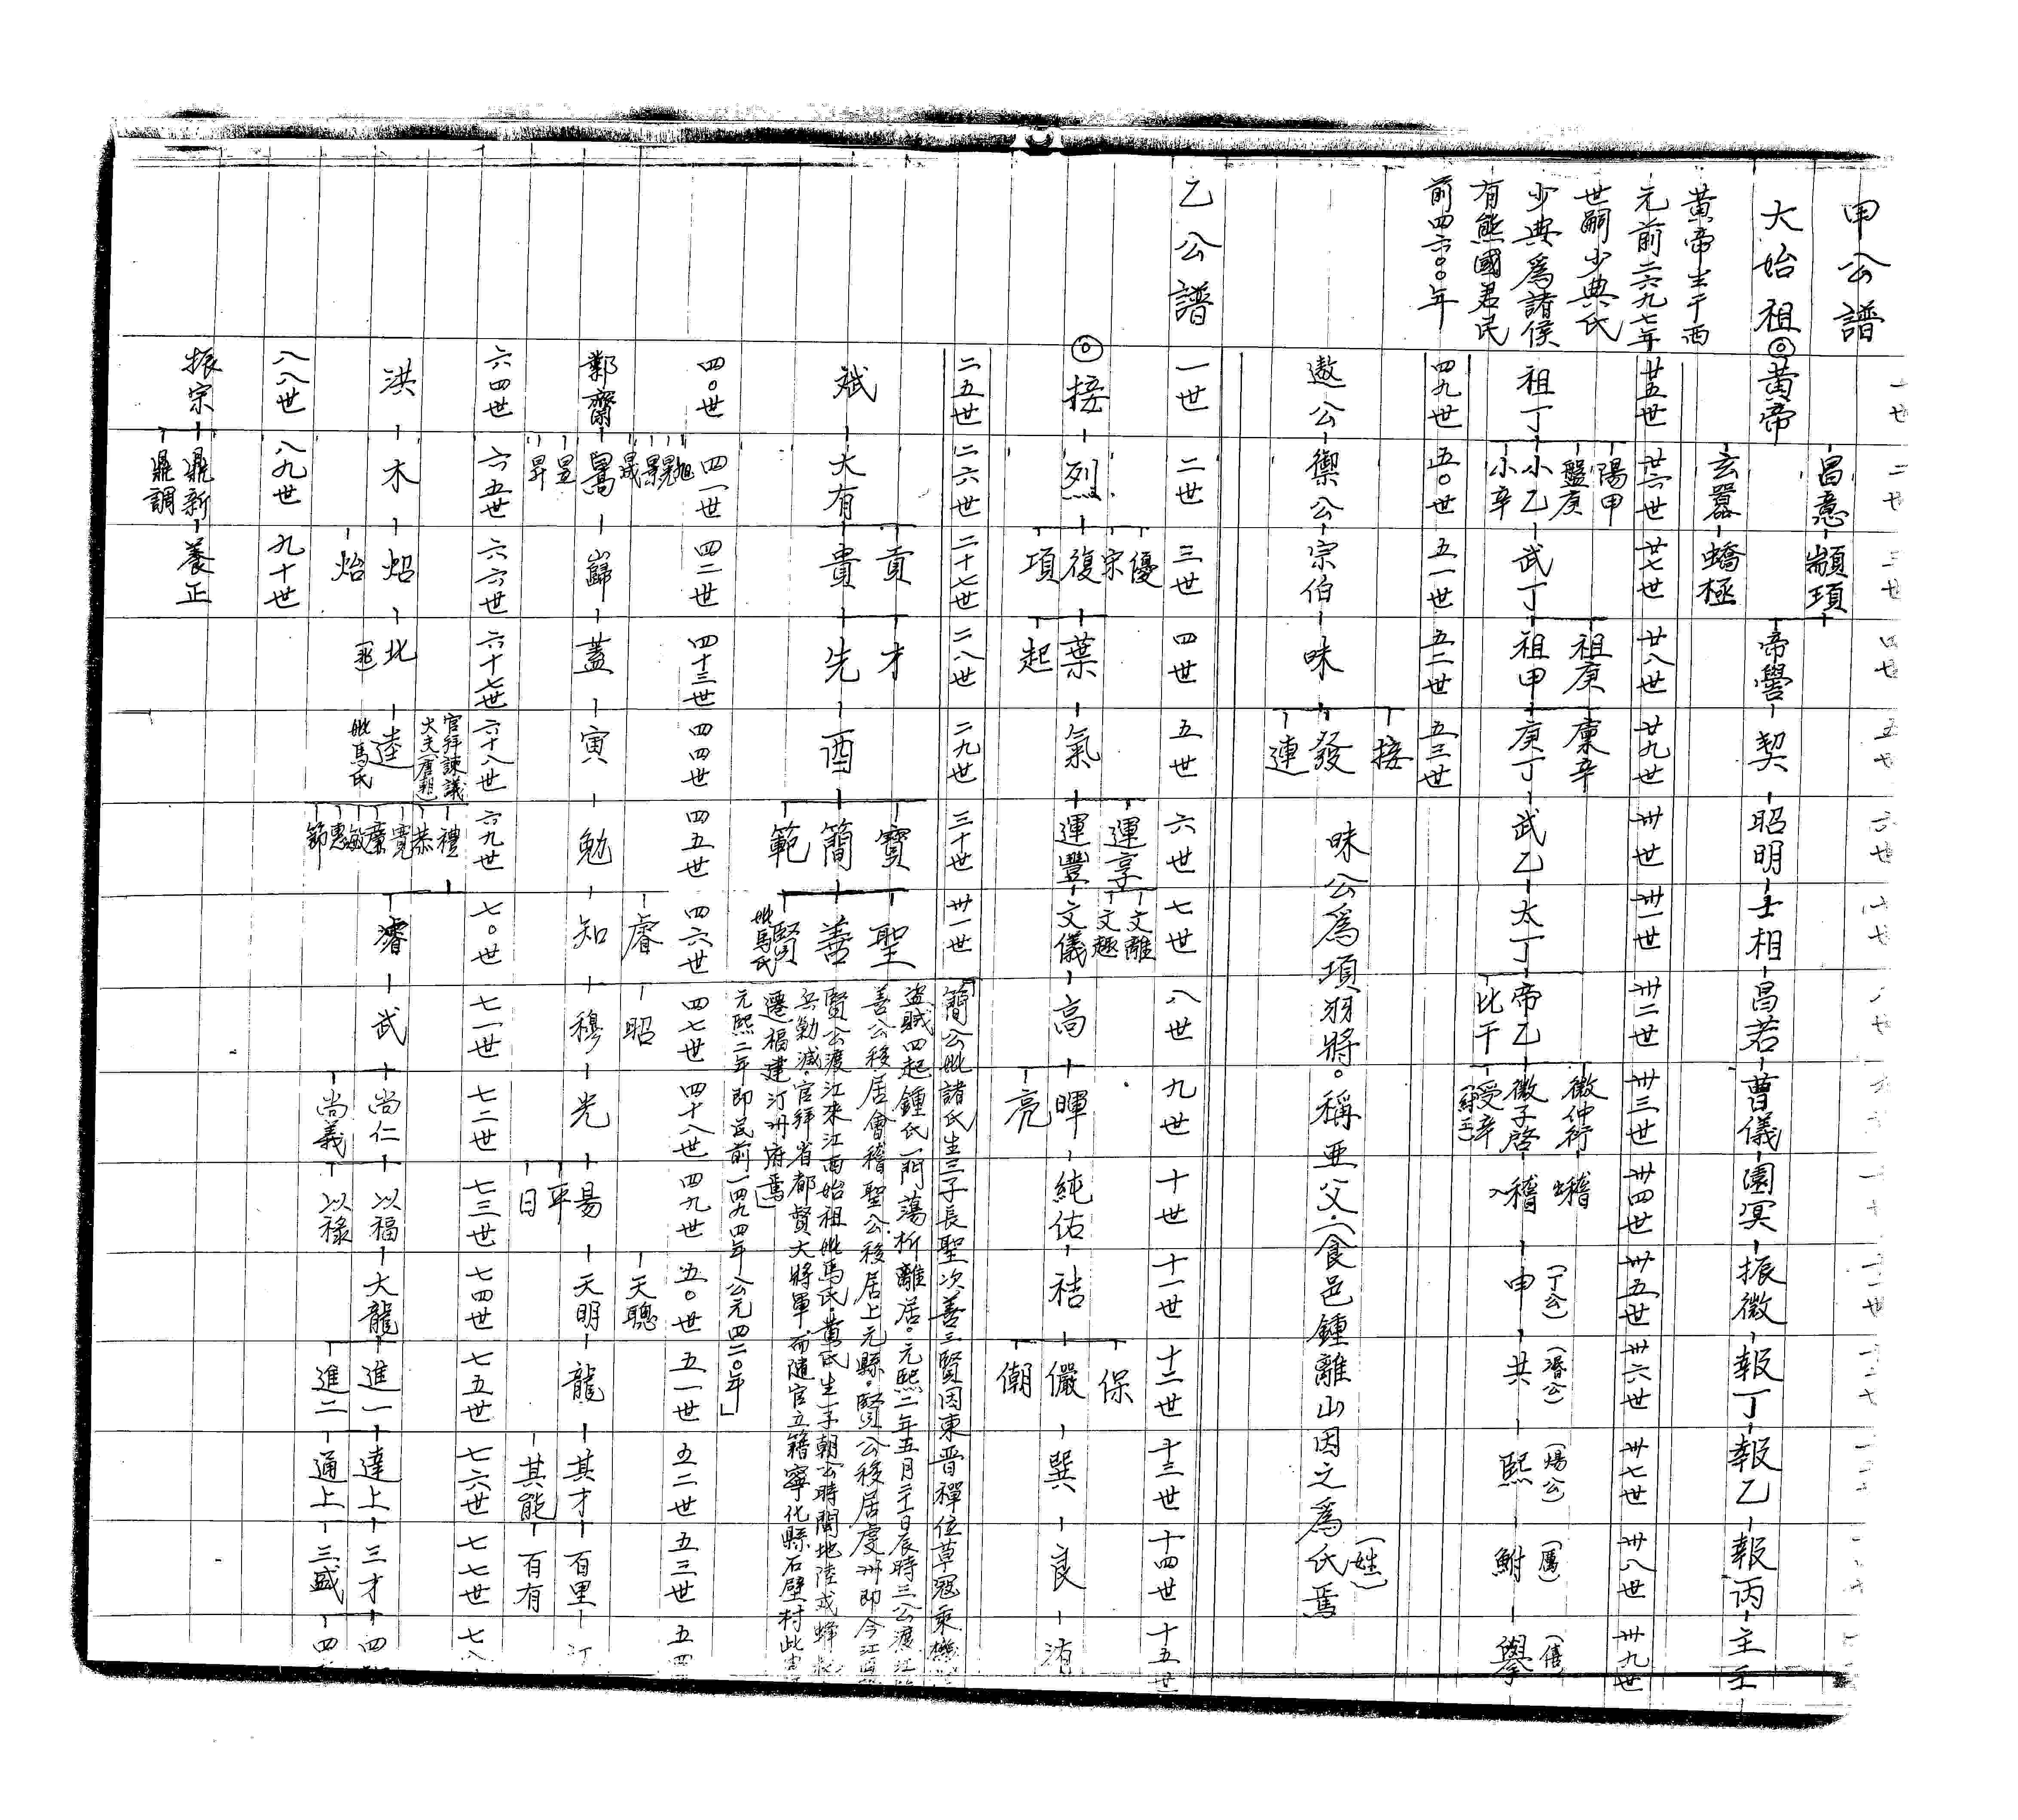 甲公譜
一世 二世 三世 四世 五世 六世
昌意 顓頊
大始祖 黃帝 帝嚳 契 昭明 士相 昌若 曹儀 園冥 振微 報丁 報乙 報丙 主壬
玄囂 蟜極
黃帝生于西
元前二六九七年
世嗣少典氏
少典爲諸侯
有熊國君民
前四六〇〇年
廿五世 廿六世 廿七世 廿八世 廿九世 卅世 卅一世 卅二世 卅三世 卅四世 卅五世 卅六世 卅七世 卅八世 卅九世
陽甲
盤庚 祖庚 廩辛 微仲衍 稽
(丁公) (湣公) (煬公) (厲) (僖
祖丁 小乙 武丁 祖甲 庚丁 武乙 太丁 帝乙 微子啓 稽 申 共 熙 鮒 舉
小辛 比干 受辛(紂王)
四九世 五〇世 五一世 五二世 五三世
接
遨公 禦公 宗伯 昧 發
連
昧公爲項羽將。稱亞父.食邑鍾離山因之爲氏焉
(姓)
乙公譜
一世 二世 三世 四世 五世 六世 七世 八世 九世 十世 十一世 十二世 十三世 十四世 十五世
優 運享 文離 保
宗 文趣
接 烈 復 葉 氣 運豐 文儀 高 暉 純佑 秸 儼 巽 良 洧
項 起 亮 僩
二五世 二六世 二十七世 二八世 二九世 三十世 卅一世
簡公妣諸氏生三子長聖次善三賢因東晉禪位草寇乘機
盜賊四起鍾氏一門蕩析離居。元熙二年五月二十一日辰時三公渡江
善公移居會稽聖公移居上元縣。賢公移居虔州即今江西
賢公渡江來江西始祖妣馬氏.黃氏生一子朝公時閩地陸戎蜂
兵勦滅.官拜省都督大將軍.而隨官立籍寧化縣石壁村此
遷福建汀州府焉」
元熙二年即民前一四九四年公元四二〇年」
貢 才 寶 聖
斌 大有 貴 先 酉 簡 善
範 賢
妣馬氏
四〇世 四一世 四二世 四十三世 四四世 四五世 四六世 四七世 四十八世 四九世 五〇世 五一世 五二世 五三世
旭 晃 景 晟 睿 昭 天聰
鄴齋 暠 巋 蓋 寅 勉 知 穆 光 昜 天明 龍 其才 百里 汀
昱 平
昇 日 其能 百有
六四世 六五世 六六世 六十七世 六十八世 六九世 七〇世 七一世 七二世 七三世 七四世 七五世 七六世 七七世 七八
官拜諫議
大夫(唐朝)
禮 恭 寬 廉 敏 惠 節
洪 木 炤 北 逵 濬 武 尚仁 以福 大龍 進一 達上 三才 四
炲 妣馬氏 尚義 以祿 進二 通上 三盛 四
八八世 八九世 九十世
振宗 鼎新 養正
鼎調